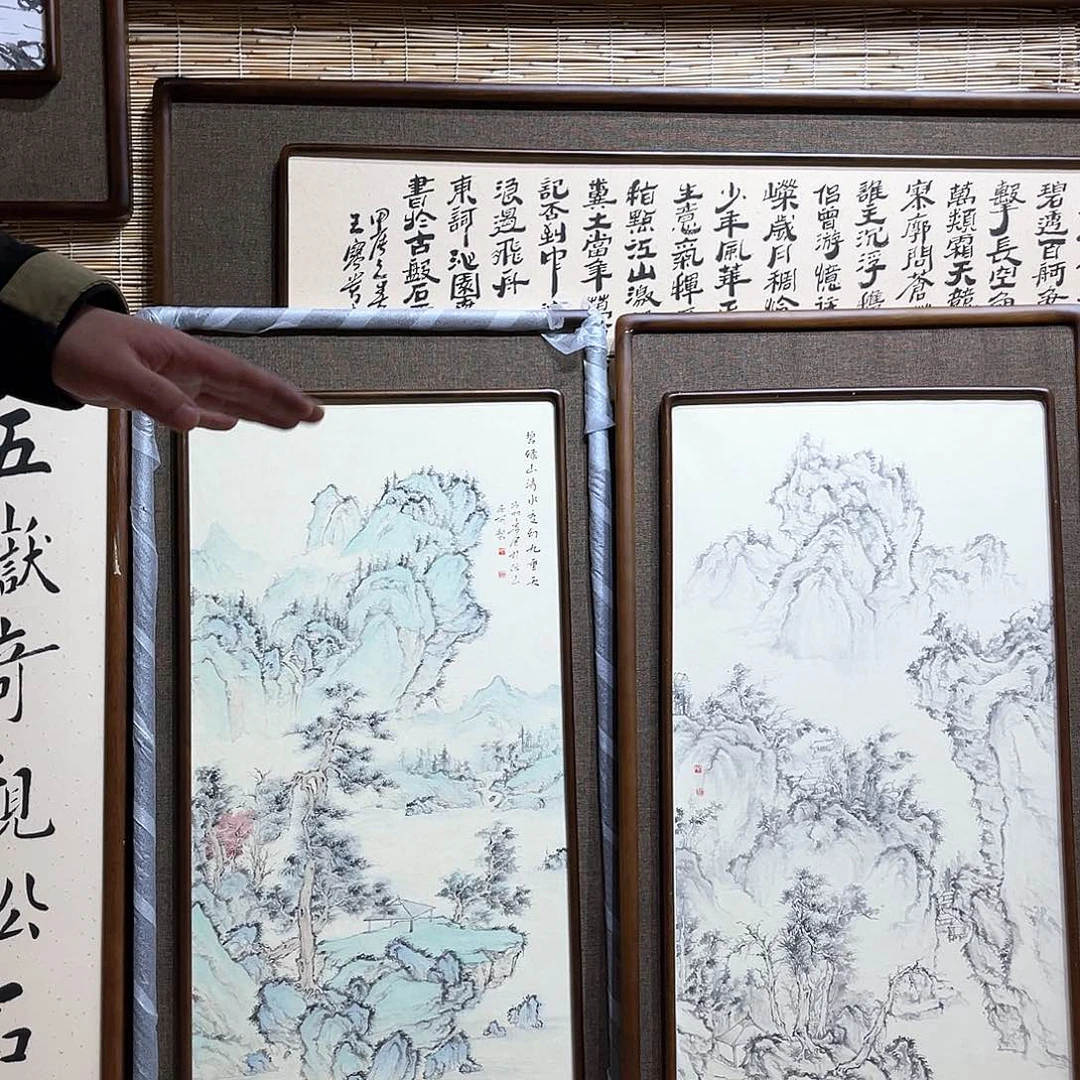 碧透百舸爭
擊長空魚
萬類霜天競
寥廓問蒼
誰主沉浮攜
侶曾游憶往
嶸歲月稠恰
少年風華正
生意氣揮
指點江山激
糞土當年萬
記否到中
浪遏飛舟
東詞沁園春
書於古盤石
甲辰之春
王
碧綠山清水九重天
五嶽奇觀松石